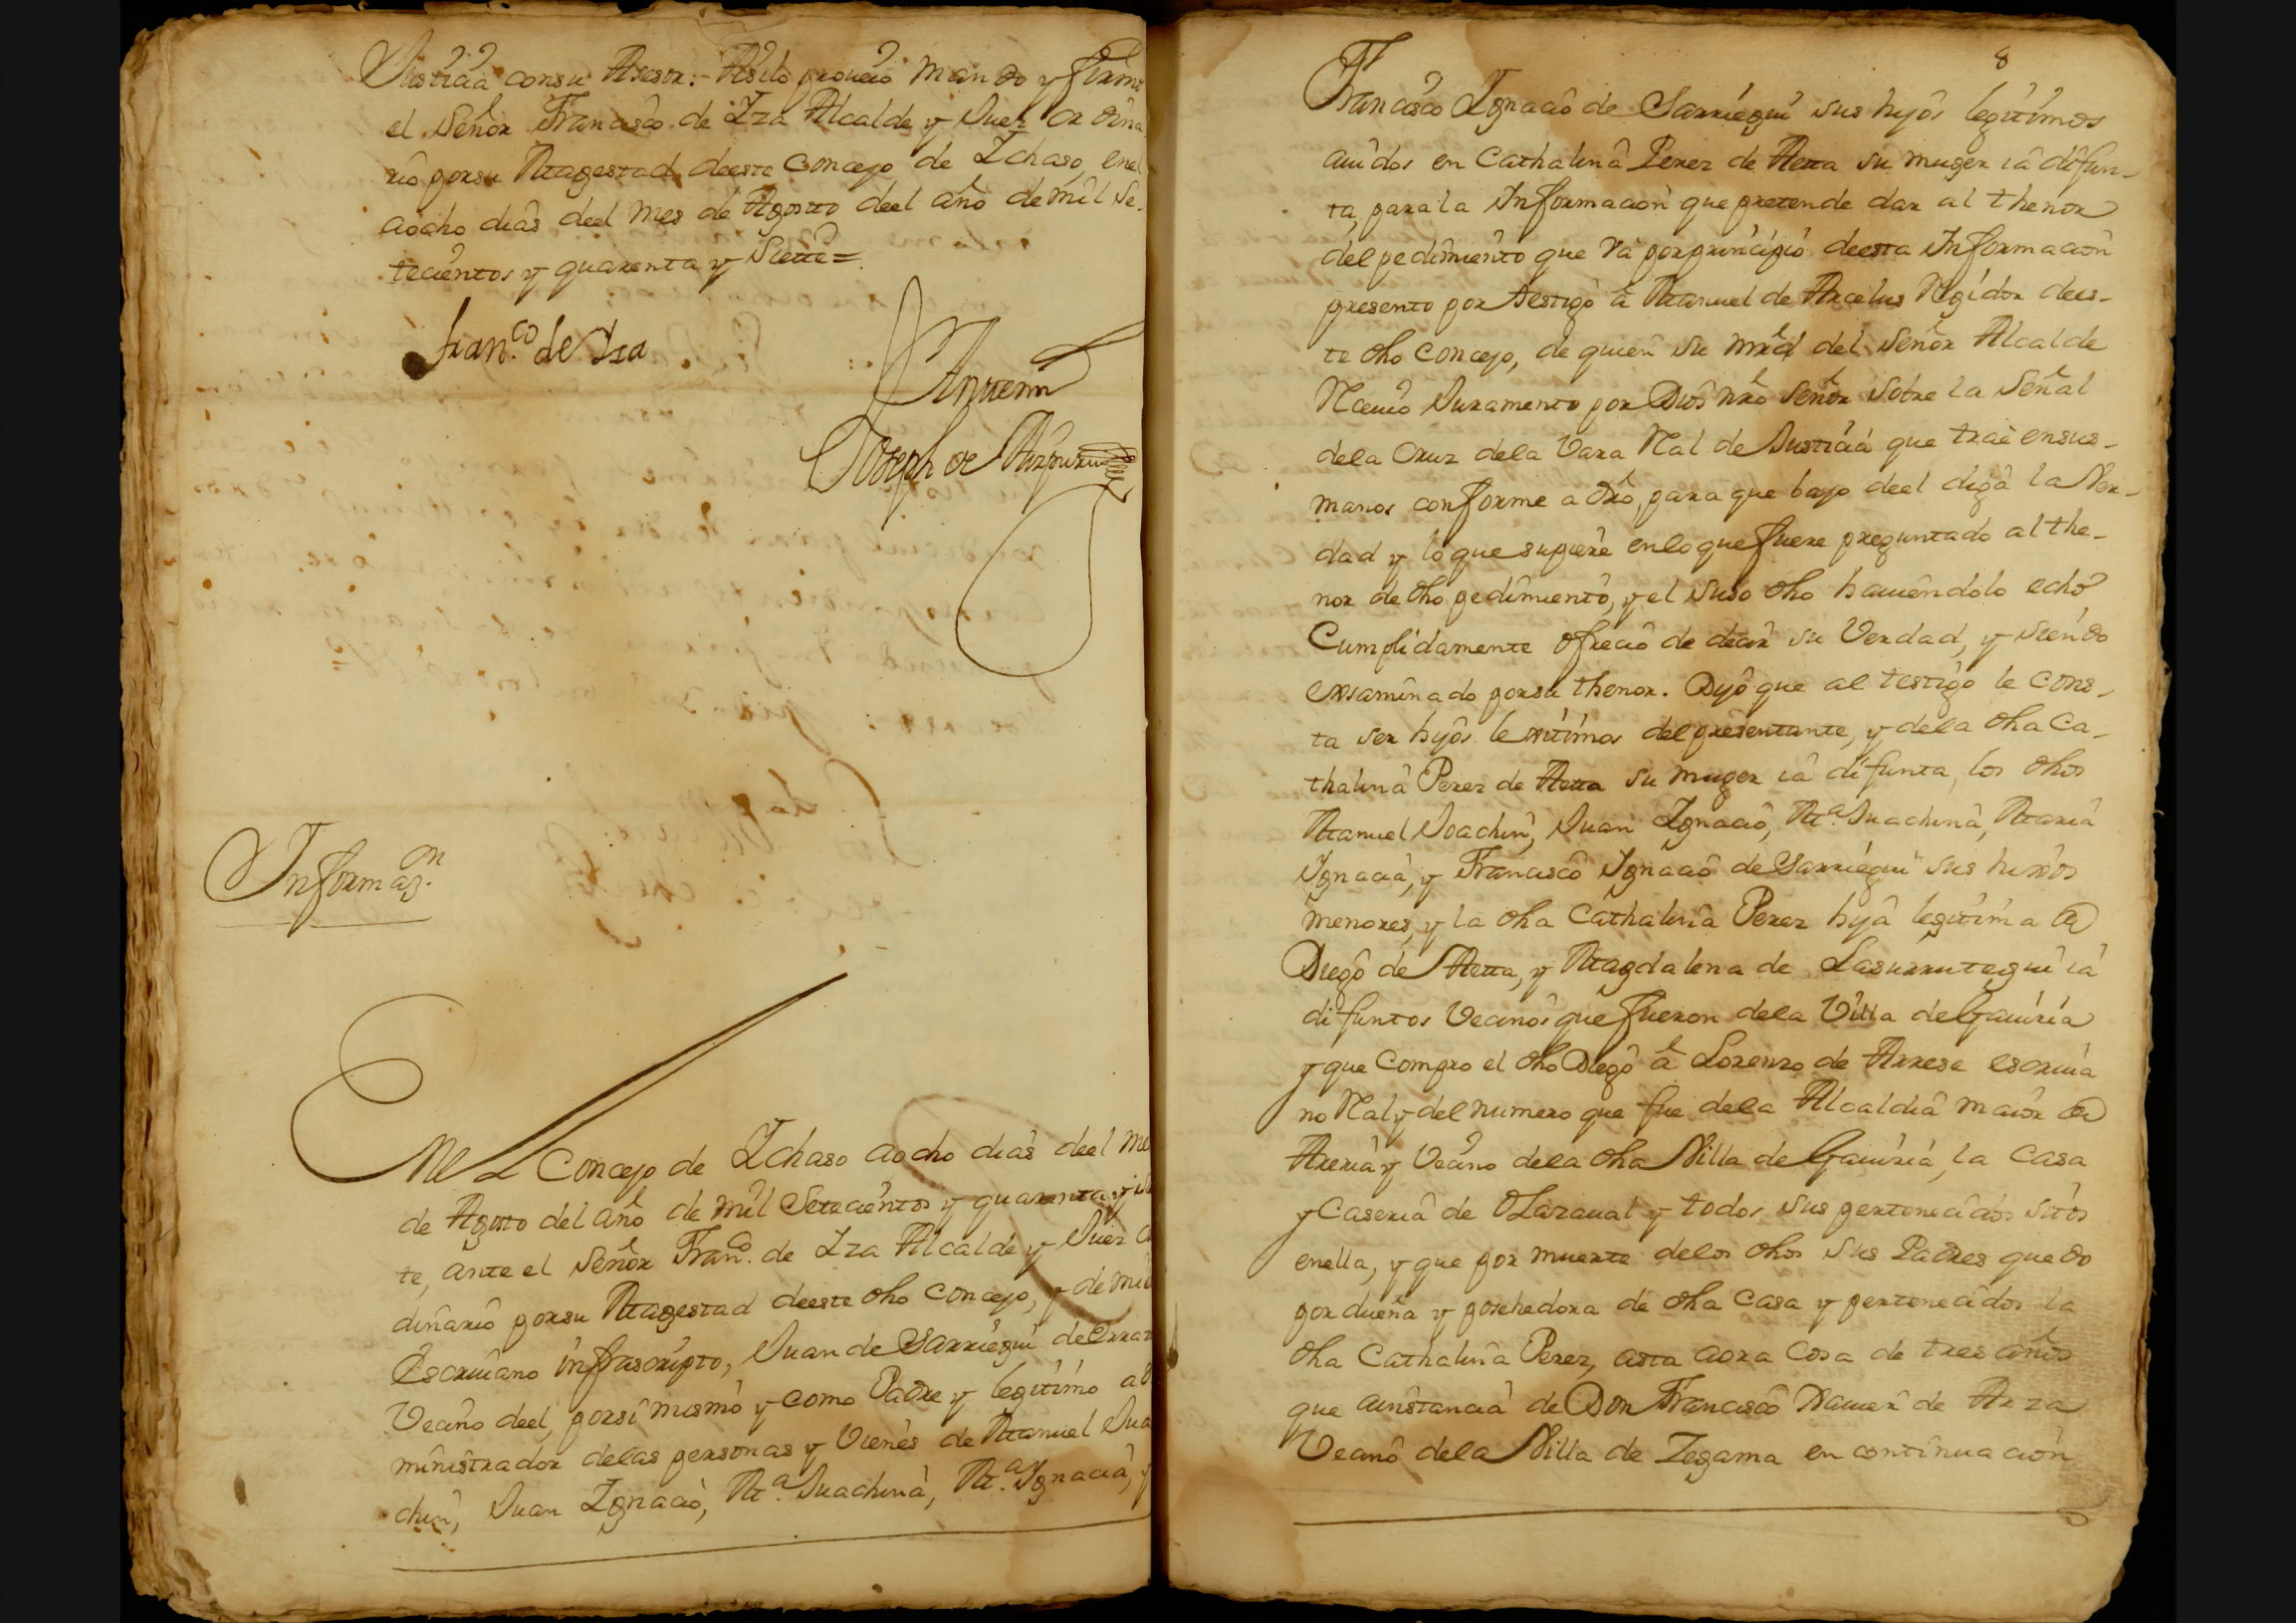 Justiçia consu Asesor:- Asilo proueio mando y firmo
el Señor Francisco de Yza Alcalde y Juez ordina
rio porsu Magestad deeste Concejo de Ychaso, enel
aocho dias deel mes de Agosto deel año de mil se-
tecientos y quarenta y Siette=
fran.co de Yza
Antemi
Joseph de Aizpuru
Informaz.n
En el Concejo de Ychaso aocho dias deel me
de Agosto del año de mil Setecientos y quarenta y sie
te, ante el Señor Fran.co de Yza Alcalde y Juez o
dinario porsu Magestad deeste dho Concejo, y de mi e
Escriuano infrascripto, Juan de Sarriegui de
Vecino deel, porsi mismo y como Padre y legitimo ad
ministrador delas personas y Vienes de Manuel Jua
chin, Juan Ygnacio, M.a Juachina, M.a Ygnacia, y
8
Francisco Ygnacio de Sarriegui sus hijos legitimos
auidos en Cathalina Perez de Aetta su muger ia difun-
ta, para la Informacion que pretende dar al thenor
del pedimiento que va por principio deesta Informacion
presento por testigo a Manuel de Arcelus Regidor dees-
te dho Concejo, de quien su mrd del Señor Alcalde
Reciuio Juramento por Dios nro Señor sobre la Señal
dela Cruz dela Vara Real de Justicia que trae ensus-
manos conforme a dro, para que bajo deel diga la Ver-
dad y lo que supiere enlo que fuere preguntado al the-
nor de dho pedimiento, y el suso dho hauiendolo echo
Cumplidamente ofrecio de decir su Verdad, y siendo
exsaminado porsu thenor. Dijo que al testigo le cons-
ta ser hijos lexitimos del presentante, y dela dha Ca-
thalina Perez de Aetta su muger ia difunta, los dhos
Manuel Joachin, Juan Ygnacio, M.a Juachina, Maria
Ygnacia, y Francisco Ygnacio de Sarriegui sus hixos
menores, y la dha Cathalina Perez hija legitima de
Diego de Aetta, y Magdalena de Lasurrutegui ia
difuntos Vecinos que fueron dela Villa de Gauiria
y que compro el dho Diego a Lorenzo de Arrese escriua
no Real y del numero que fue dela Alcaldia maior de
Areria y Vecino dela dha Villa de Gauiria, la Casa
y Caseria de Olazaual y todos sus pertenecidos sitos
enella, y que por muerte delos dhos sus Padres quedo
por dueña y posehedora de dha Casa y pertenecidos la
dha Cathalina Perez, asta aora Cosa de tres años
que ainstancia de Don Francisco Xauier de Arza
Vecino dela Villa de Zegama en continuacion